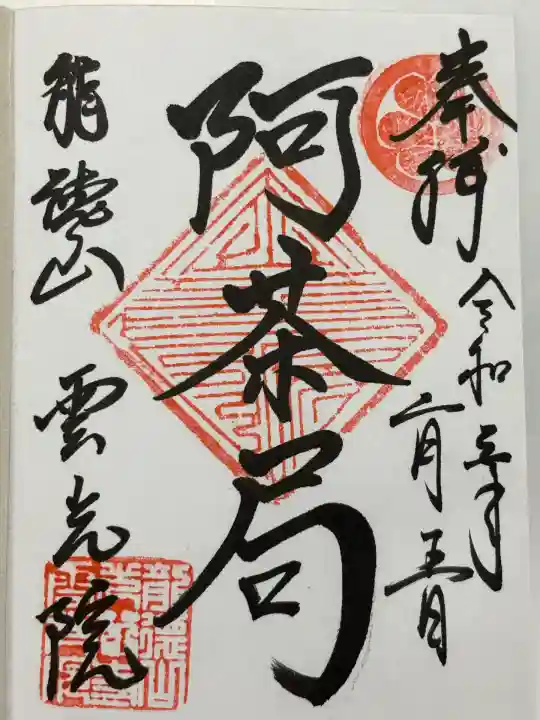 奉拝
令和三年
二月五日
阿茶局
龍徳山 雲光院